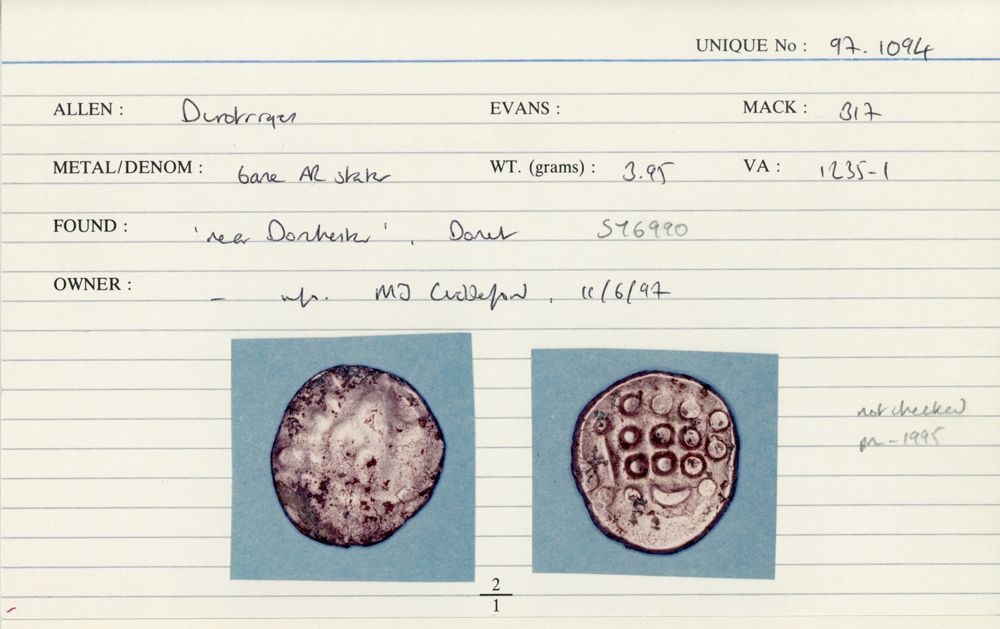 UNIQUE No : 97.1094
ALLEN : Durotriges EVANS : MACK : 317
METAL/DENOM : base AR stater WT. (grams) : 3.95 VA : 1235-1
FOUND : 'near Dorchester', Dorset SY6990
OWNER : - info. MJ Cuddeford, 11/6/97
not checked
pre-1995
2
1